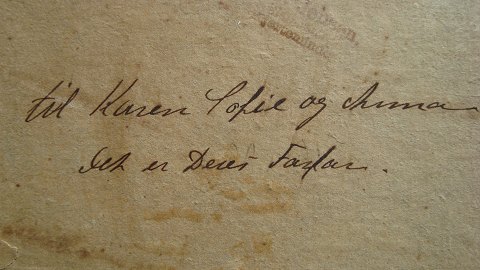 til Karen Sofie og Anna
Det er Deres Farfar.